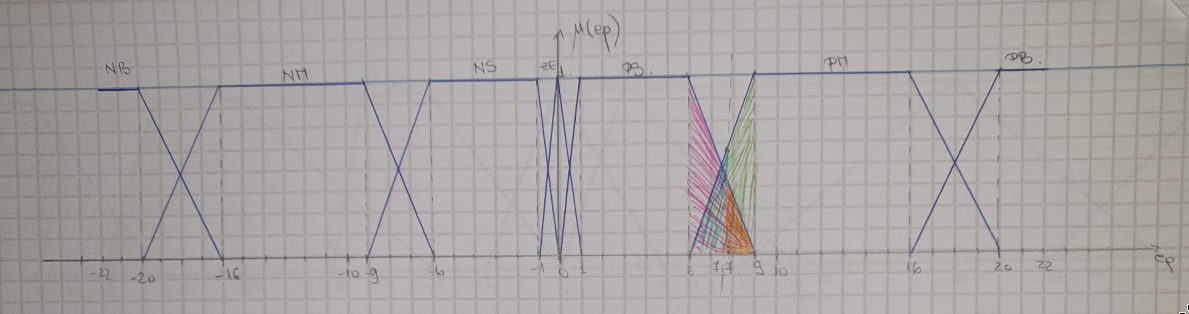 μ(ep)
NB NM NS ZE 1 PS. PM PB.
-22 -20 -16 -10 -9 -6 -1 0 1 6 7,7 9 10 16 20 22 ep